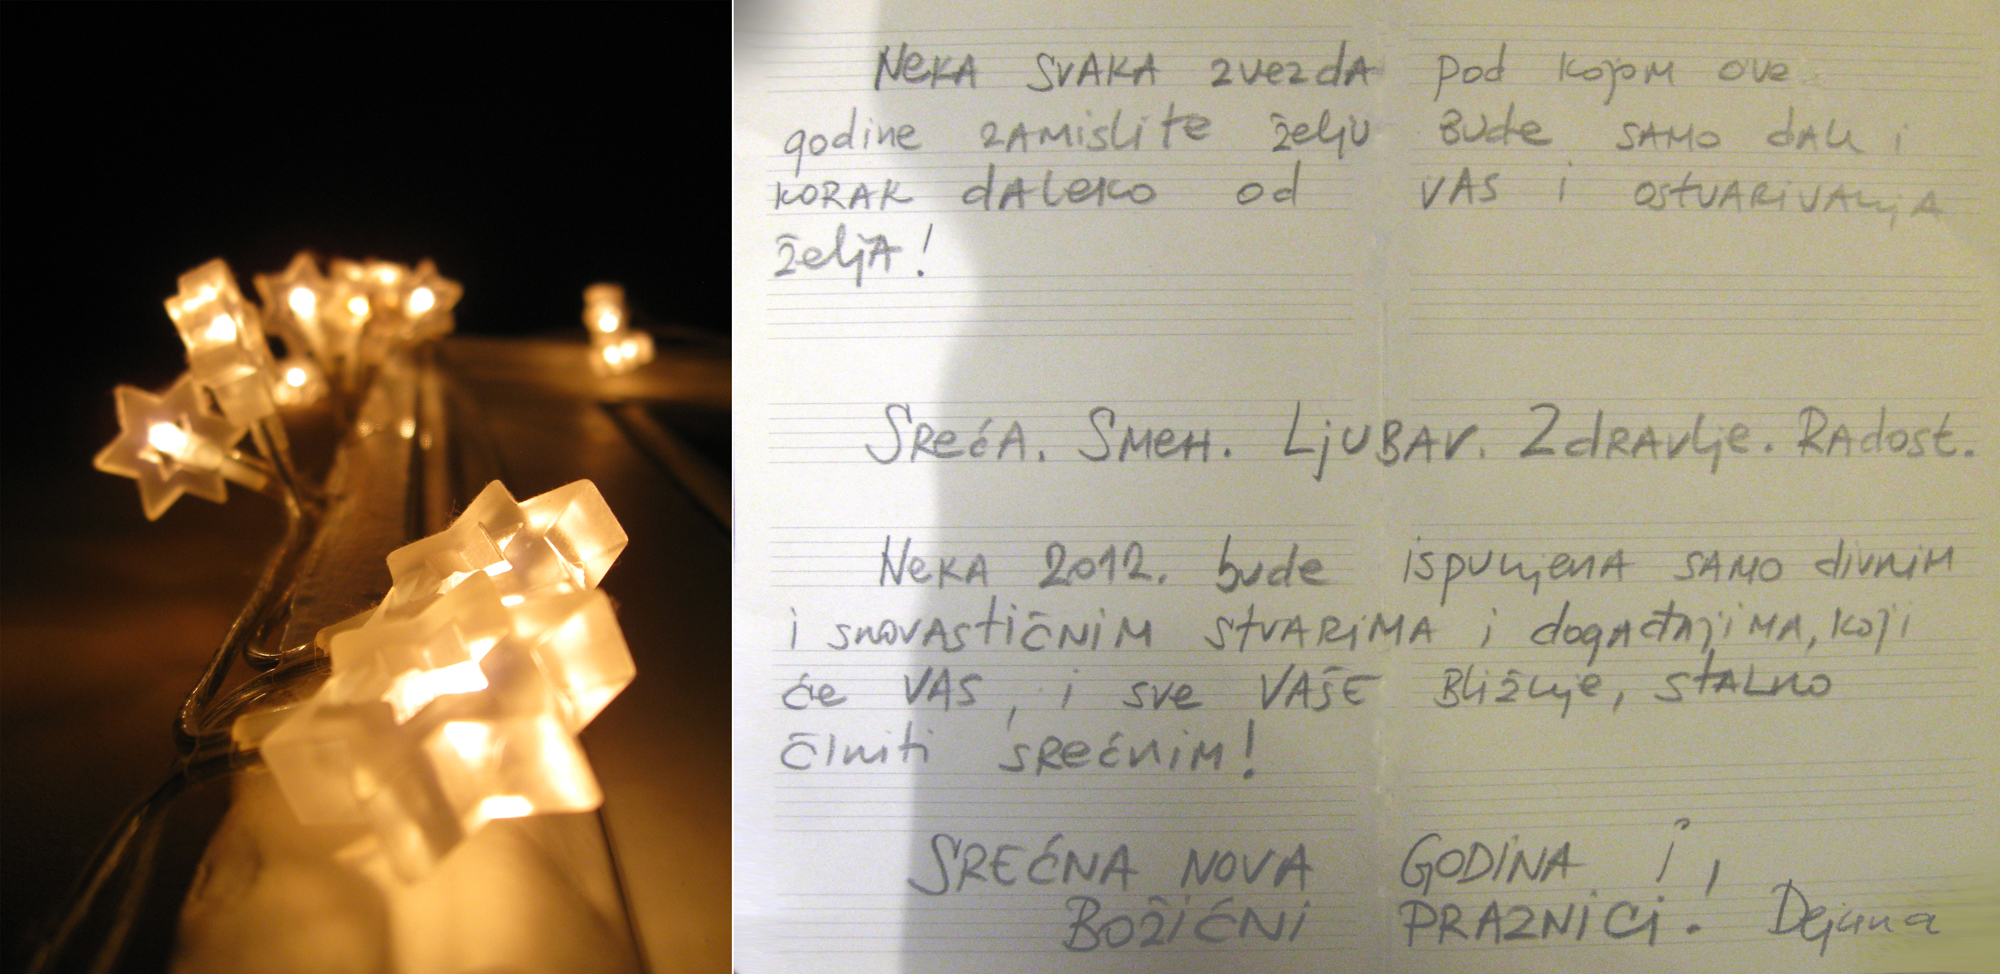 Neka svaka zvezda pod kojom ove
godine zamislite želju bude samo dah i
korak daleko od vas i ostvarivanja
želja!
Sreća. Smeh. Ljubav. Zdravlje. Radost.
Neka 2012. bude ispunjena samo divnim
i snovastičnim stvarima i događajima, koji
će vas, i sve vaše bližnje, stalno
činiti srećnim!
SREĆNA NOVA GODINA i
BOŽIĆNI PRAZNICI! Dejana